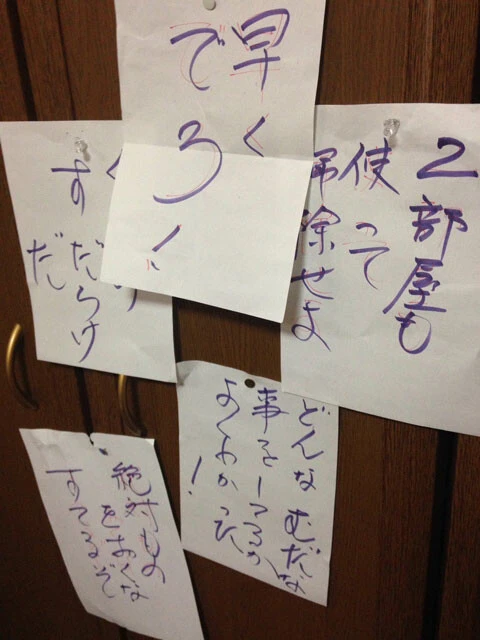 早く
でろ!
2部屋も
使って
掃除せよ
すだらけ
だ
どんなむだな
事をしてるか
よくわかった!
絶対もの
をおくな
すてるぞ